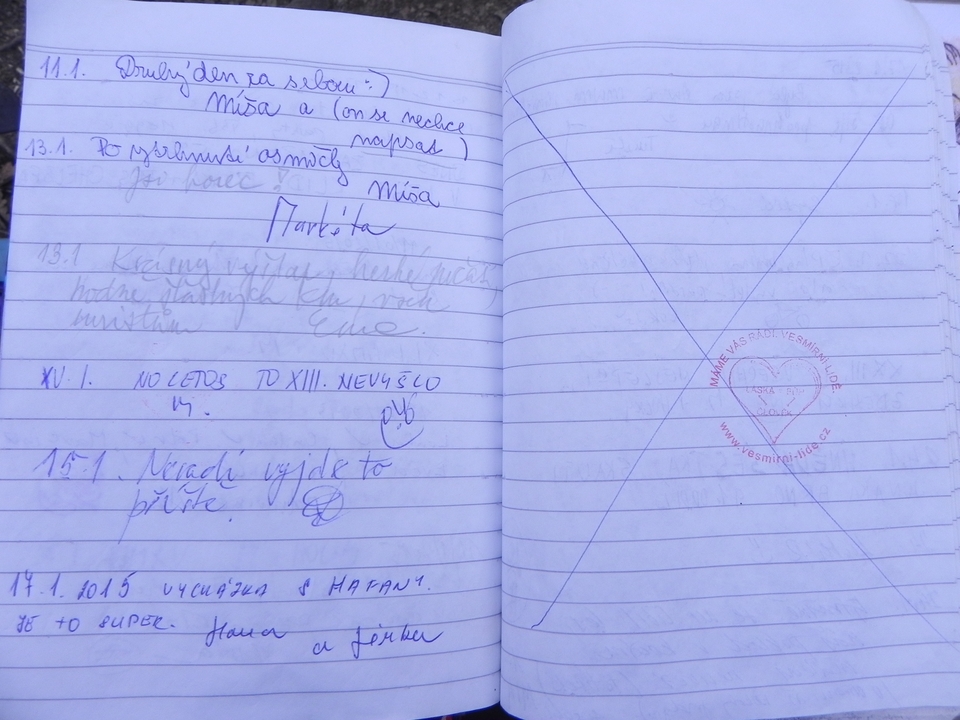 11.1. Druhý den za sebou :)
Míša a (on se nechce
napsat)
13.1. Po vytrhnutí osmičky
Jsi borec!
Míša
Markéta
13.1 Krásný výšlap, hezké počasí,
hodně šťastných km, všem
turistům
XV. I. NO LETOS TO XIII. NEVYŠLO
15.1. Nevadí vyjde to
příště.
17.1.2015 VYCHÁZKA S HAFANY.
JE TO SUPER. Hana
a Jirka
MÁME VÁS RÁDI, VESMÍRNÍ LIDÉ
LÁSKA
ČLOVĚK
www.vesmirni-lide.cz